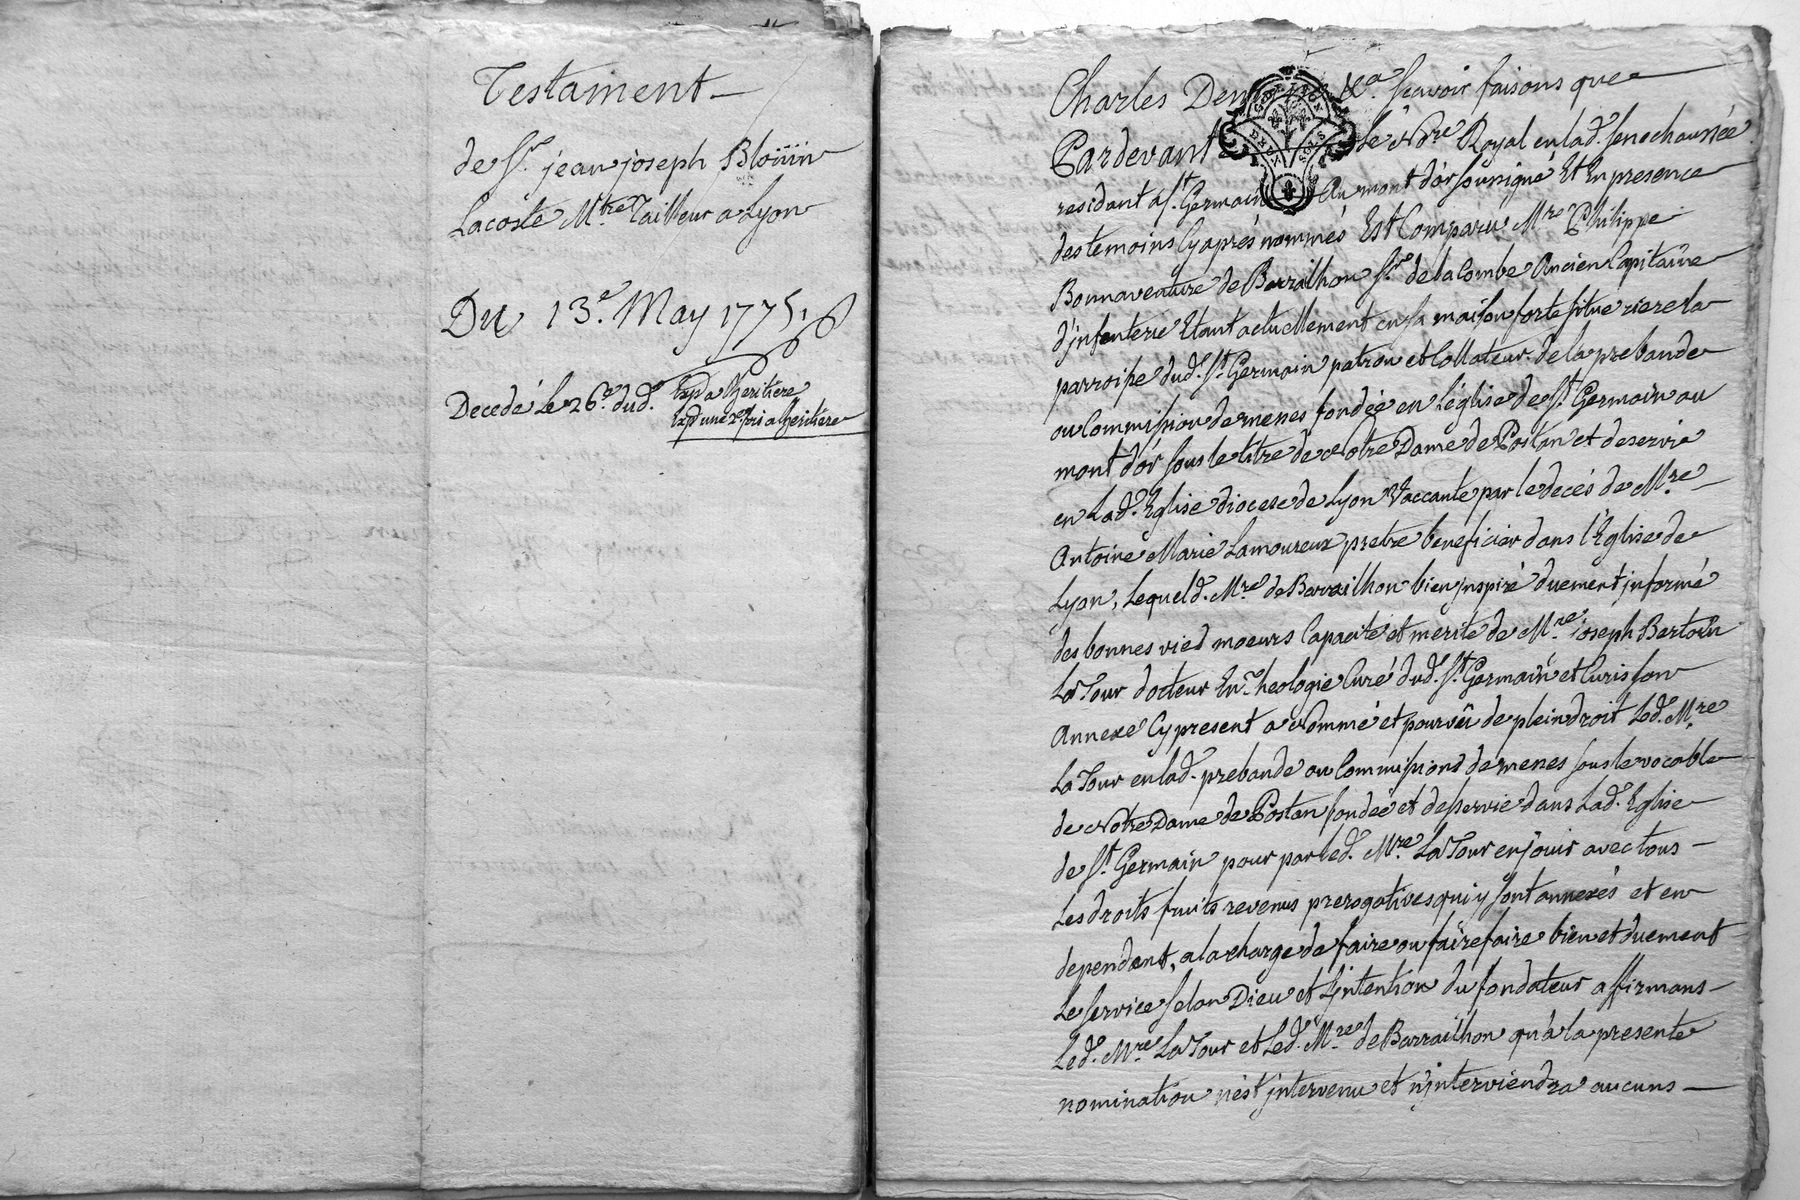 Testament
de Sr. jean joseph Bloüin
Lacoste Mtre Tailleur a Lyon
Du 13e. May 1775.
Decedé le 26e. dud.
Exp a lheritiere
Exp une 2e fois a lheritiere
Charles Deni &a. scavoir faisons que
Pardevant Le Nore Royal en lad. senechaussée
residant a St. Germain Au mont d'or soussigné Et En presence
des temoins Cyaprés nommés Est Comparu Mre Philippe
Bonnaventure de Barrailhon Sr. de la Combe Ancien Capitaine
d'jnfenterie Etant actuellement en sa maison forte situe riere la
parroisse dud. St. Germain patron et Collateur de la prebande
ou Commission de messes fondée en L'église de St. Germain au
mont d'or sous le titre de Notre Dame de Postan et deservie
en Lad. Eglise diocese de Lyon Vaccante par le decés de Mre
Antoine Marie Lamoureux pretre beneficier dans l'Eglise de
Lyon, Lequel d. Mre de Barrailhon bien jnspiré duement jnformé
des bonnes vie et moeurs Capacité et merite de Mre joseph Bertoin
La Tour docteur En Theologie Curé dud. St. Germain et Curis son
Annexe Cy present a Nommé et pourvû de plein droit Led. Mre
La Tour en lad. prebande ou Commissions de messes sous le vocable
de Notre Dame de Postan fondée et desservie dans Lad. Eglise
de St. Germain pour par led. Mre La Tour en jouir avec tous
Les droits fruits revenus prerogatives qui y sont annexés et en
dependant, a la charge de faire ou faire faire bien et duement
Le service selon Dieu et L'jntention du fondateur affirmans
Led. Mre La Tour et Led. Mre de Barrailhon qu'à la presente
nomination n'est jntervenu et n'jnterviendra aucuns